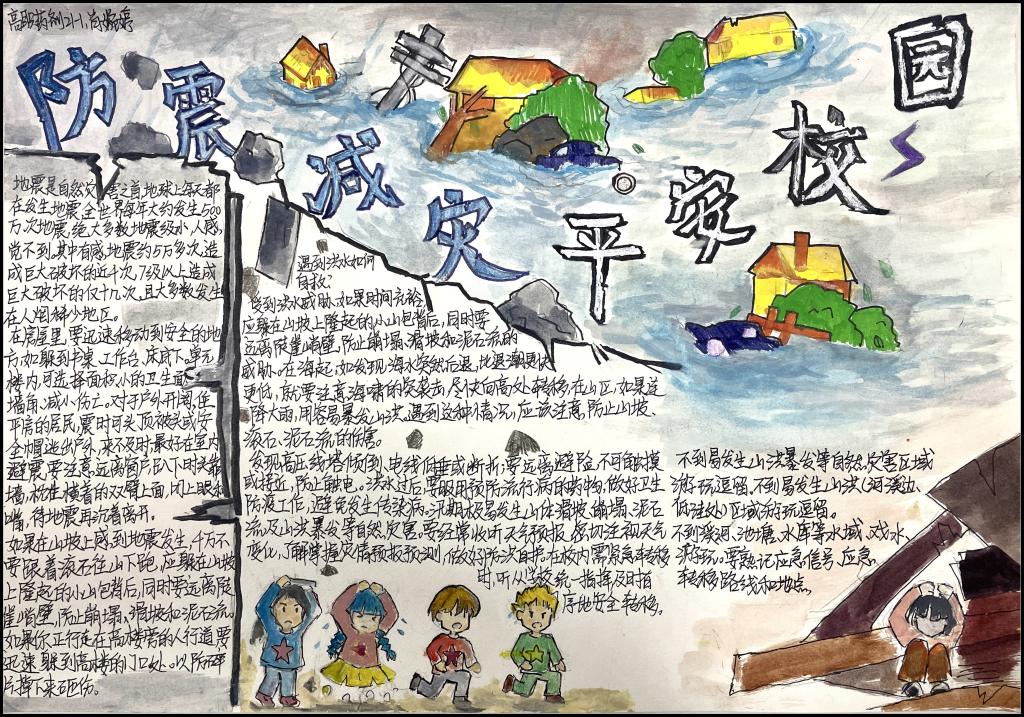 高职药剂21-1
防震减灾 平安校园
地震是自然灾害之首,地球上每天都
在发生地震,全世界每年大约发生500
万次地震,绝大多数地震级小人感
觉不到。其中有感地震约5万多次,造
成巨大破坏的近十次,7级以上造成
巨大破坏的仅十几次,且大多数发生
在人烟稀少地区。
在房屋里,要迅速移动到安全的地
方,如躲到书桌、工作台、床底下。单元
楼内,可选择面积小的卫生间、
墙角,减小伤亡。对于户外开阔,住
平房的居民,震时可头顶被头或安
全帽逃出户外,来不及时最好在室内
避震,要注意远离窗户,趴下时头靠
墙,枕在横着的双臂上面,闭上眼和
嘴,待地震再沉着离开。
如果在山坡上感到地震发生,千万不
要跟着滚石往山下跑,应躲在山坡
上隆起的小山包背后,同时要远离陡
崖峭壁,防止崩塌,滑坡和泥石流。
如果你正行走在高楼旁的人行道,要
迅速躲到高楼的门口处,以防碎
片掉下来砸伤。
遇到洪水如何
自救:
受到洪水威胁,如果时间充裕,
应躲在山坡上隆起的小山包背后,同时要
远离陡崖峭壁,防止崩塌、滑坡和泥石流的
威胁。在海起,如发现海水突然后退,比退潮更快、
更低,就要注意海啸的突袭击,尽快向高处转移,在山区,如果连
降大雨,用容易暴发山洪。遇到这种情况,应该注意,防止山坡、
滚石、泥石流的伤害。
发现高压线塔倾倒、电线低垂或断折;要远离避险,不可触摸
或接近,防止触电。洪水过后,要服用预防流行病的药物,做好卫生
防疫工作,避免发生传染病。汛期极易发生山体滑坡、崩塌、泥石
流及山洪暴发等自然灾害。要经常收听天气预报,密切注视天气
变化,了解掌握灾情预报预测,做好防洪自护。在校内需紧急转移
时,听从学校统一指挥,及时有
序地安全转移。
不到易发生山洪暴发等自然灾害区域
游玩逗留。不到易发生山洪(河溪边、
低洼处)区域游玩逗留。
不到深河、池塘、水库等水域,戏水、
游玩。要熟记应急信号、应急
转移路线和地点。